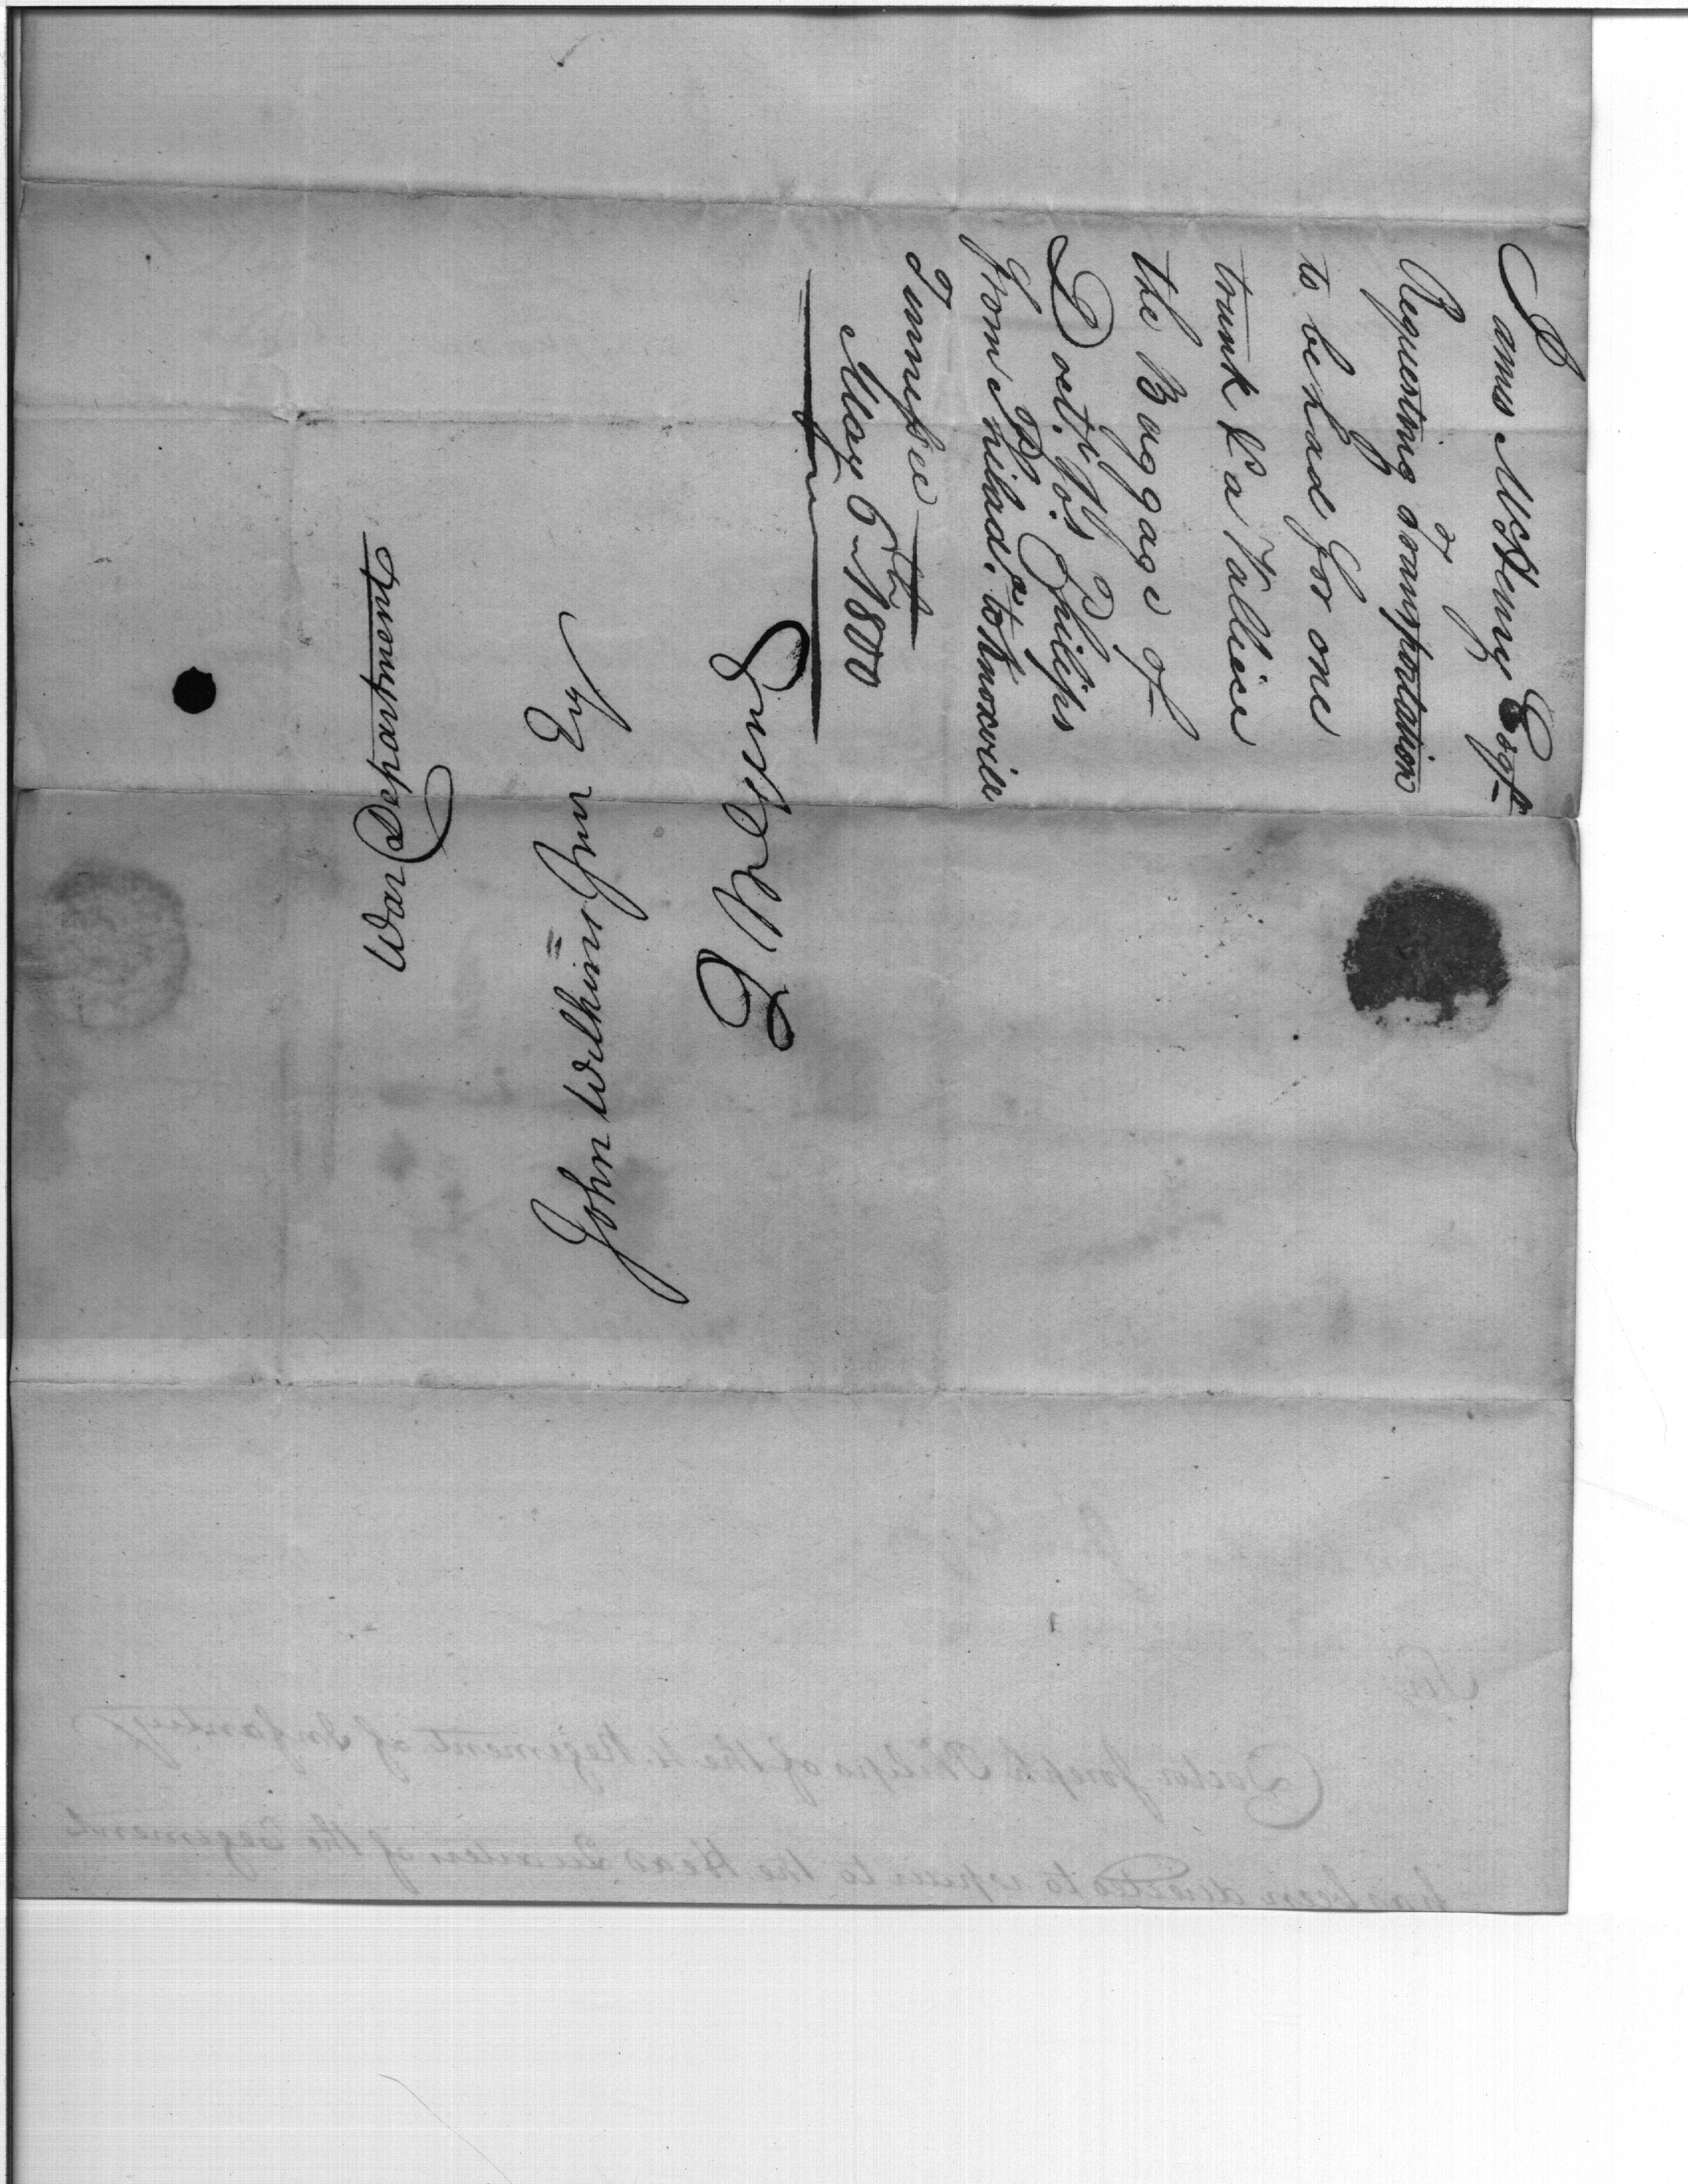 James McHenry Esqr.
Requesting Transportation
to be had for one
trunk & a Vallice
the Baggage of
Doct.r Jos. Philips
from Philad.a to Knoxvill
Tennessee
May 6th 1800
War Department
John Wilkins Junr Esq
Q M Genl
Sir
Doctor Joseph Philips of the 4. Regiment of Infantry
has been directed to repair to the Head Quarters of the Regiment